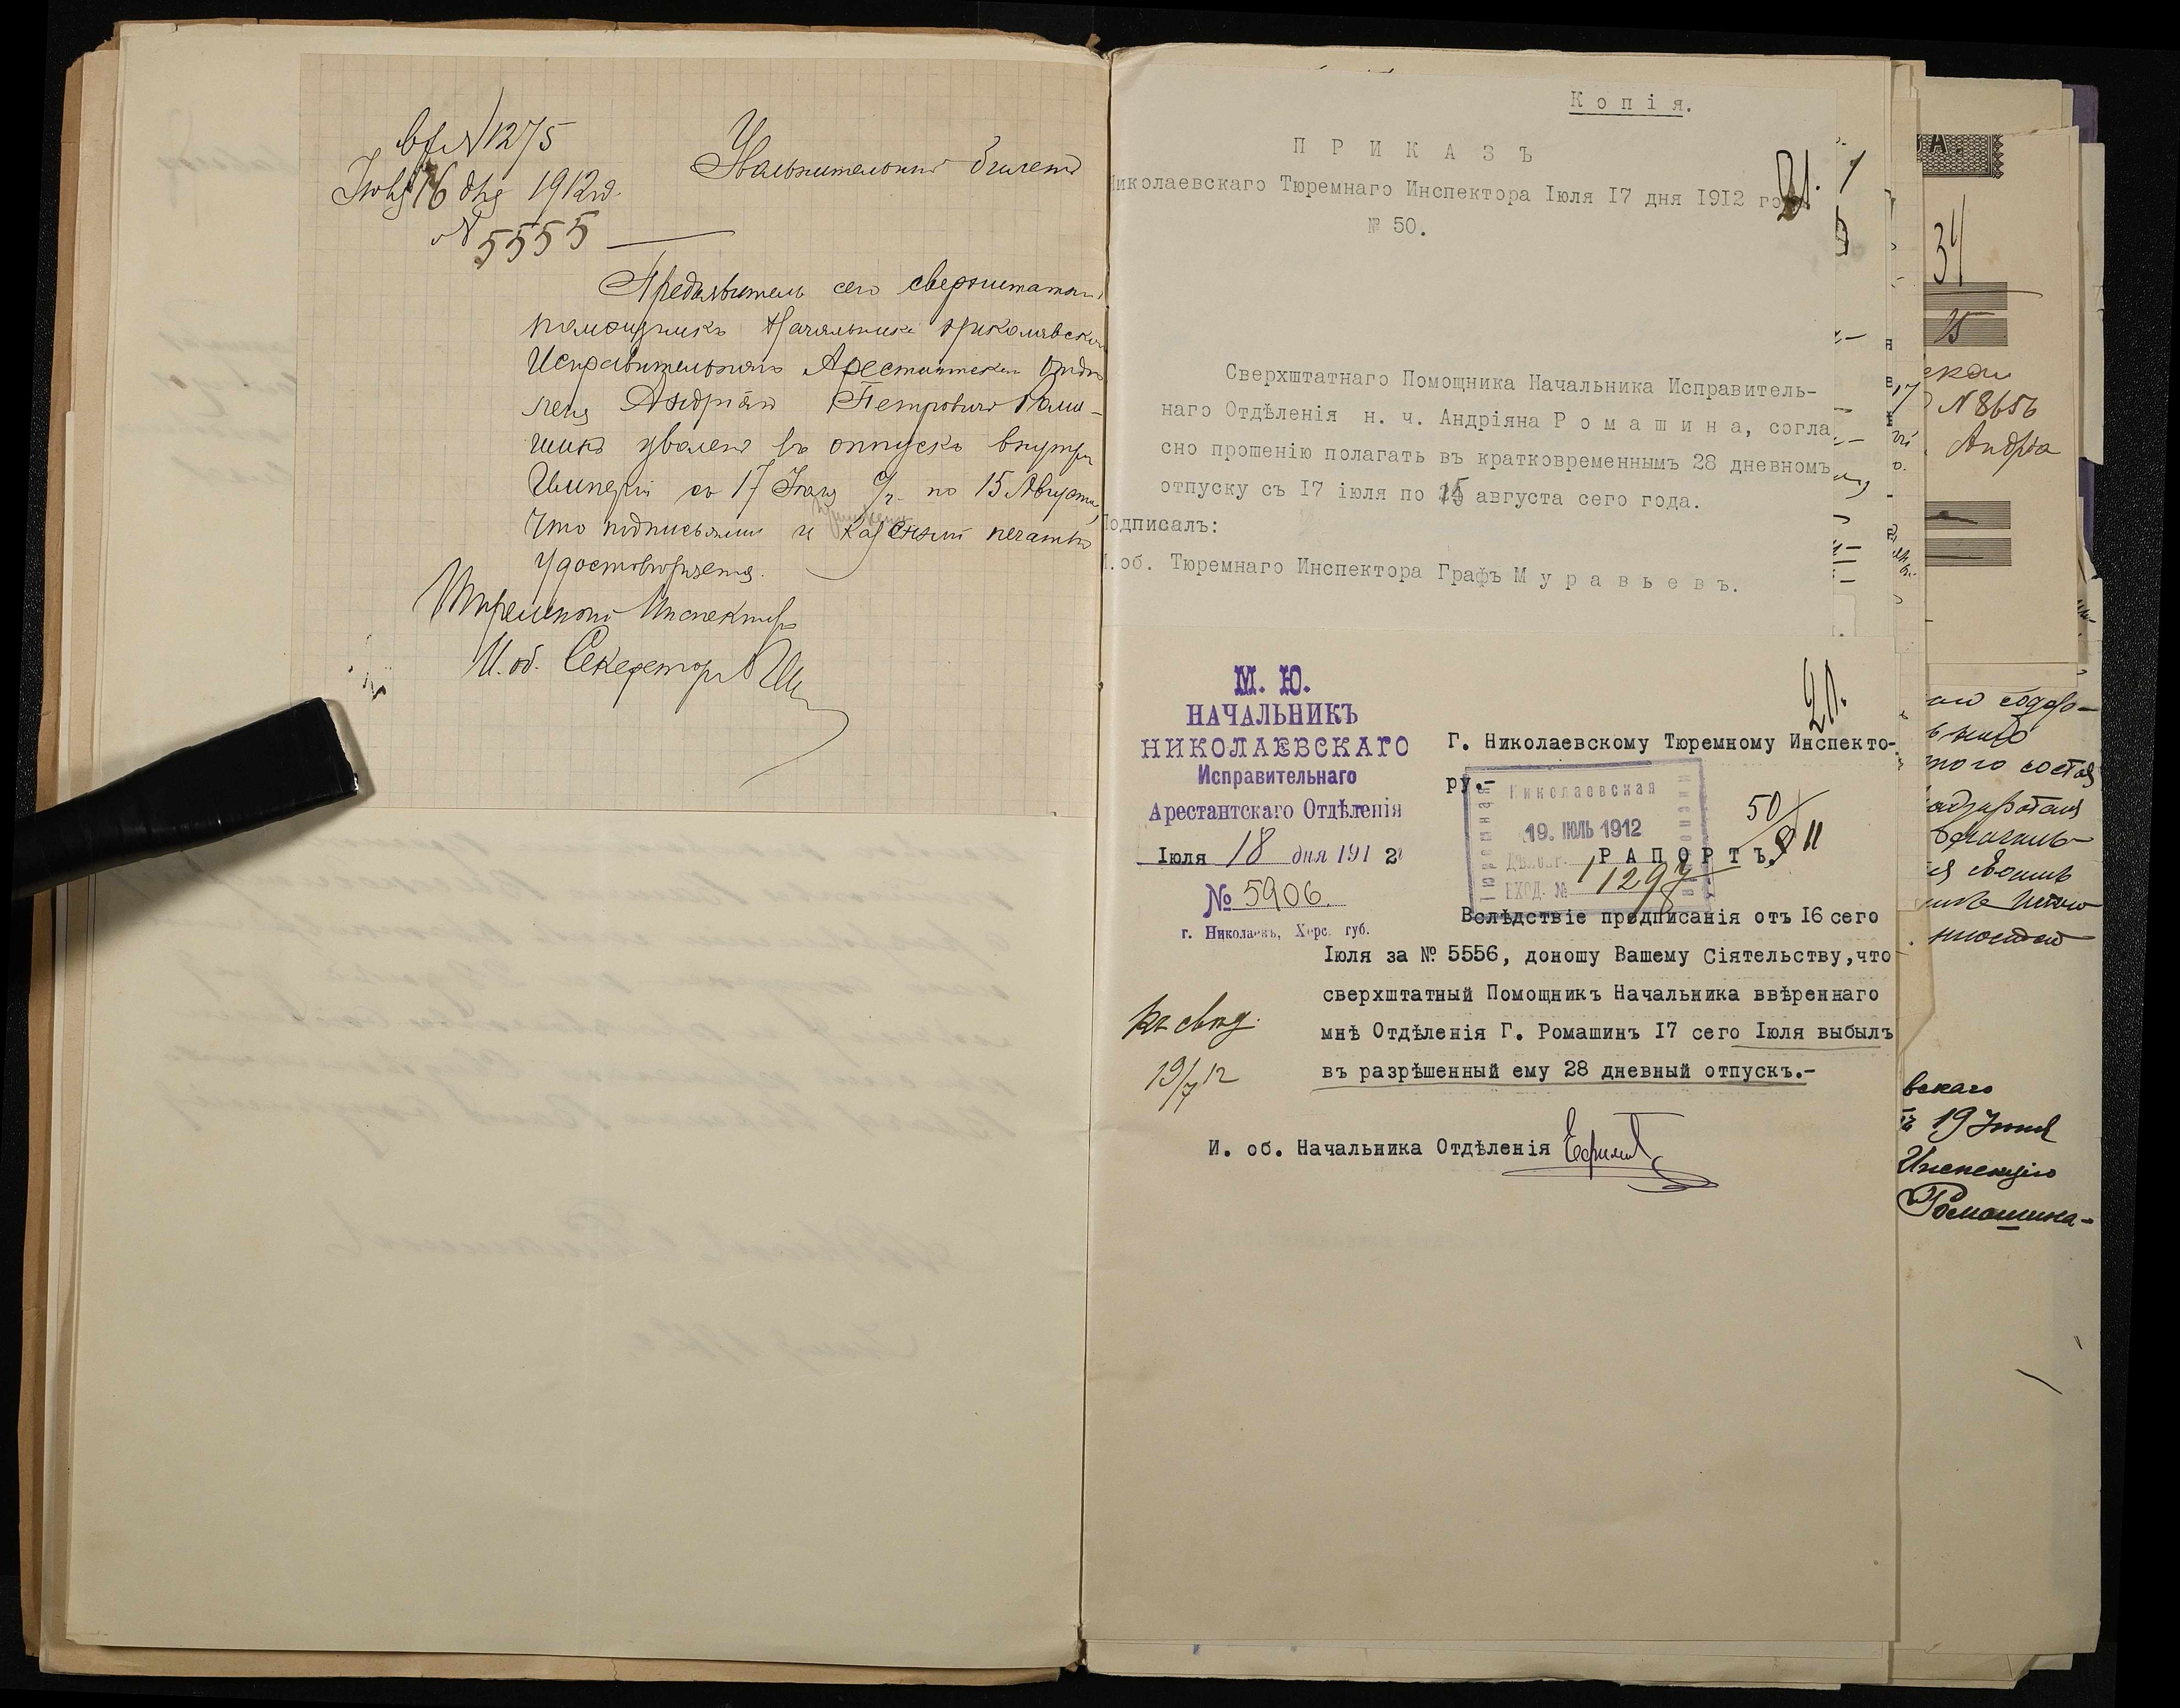 № 1275
Увольнительный билетъ
16 дня 1912 г.
№ 5555
Предъявитель сего сверхштатный
помощникъ Начальника Николаевскаго
Исправительнаго Арестантскаго Отдѣ
ленія Андріанъ Петровичъ Рома-
шинъ уволенъ въ отпускъ внутри
Имперіи съ 17 Іюля с/г. по 15 Августа,
что подписьями и казенной печатью
удостовѣряется.
Тюремный Инспекторъ
И. об. Секретаря
Копія.
ПРИКАЗЪ
Николаевскаго Тюремнаго Инспектора Іюля 17 дня 1912 го
№ 50.
21.
Сверхштатнаго Помощника Начальника Исправитель-
наго Отдѣленія н. ч. Андріяна Ромашина, согла
сно прошенію полагать въ кратковременнымъ 28 дневномъ
отпуску съ 17 іюля по 15 августа сего года.
Подписалъ:
И.об. Тюремнаго Инспектора Графъ Муравьевъ.
М. Ю.
НАЧАЛЬНИКЪ
НИКОЛАЕВСКАГО
Исправительнаго
Арестантскаго Отдѣленія
Іюля 18 дня 1912
№ 5906.
г. Николаевъ, Херс. губ.
Г. Николаевскому Тюремному Инспекто-
ру.-
Николаевская
Тюремная
19. ІЮЛЬ 1912
ВХОД. №
11297
50
РАПОРТЪ.
Вслѣдствіе предписанія отъ 16 сего
Іюля за № 5556, доношу Вашему Сіятельству,что
сверхштатный Помощникъ Начальника ввѣреннаго
мнѣ Отдѣленія Г. Ромашинъ 17 сего Іюля выбылъ
въ разрѣшенный ему 28 дневный отпускъ.-
Къ свѣд.
19/7 12
И. об. Начальника Отдѣленія
34
25
№ 8656
Андріа
вскаго
19 Іюня
Инспекцію
Ромашина-